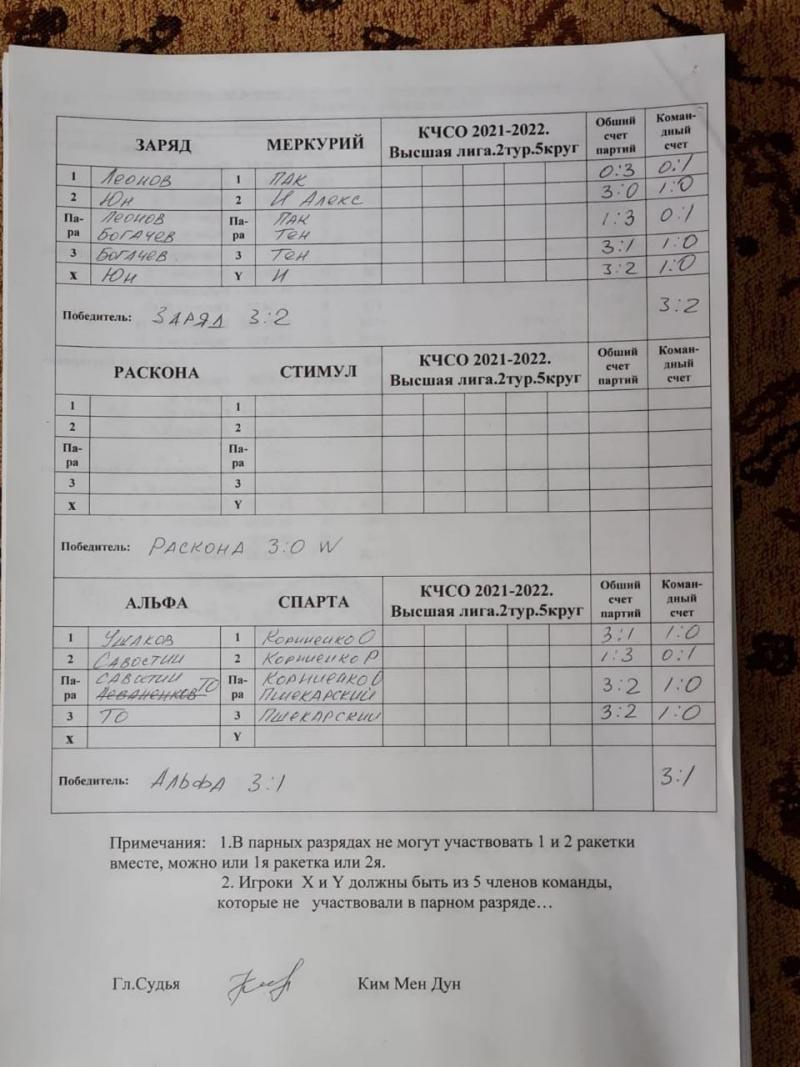 ЗАРЯД МЕРКУРИЙ КЧСО 2021-2022. Высшая лига.2тур.5круг Обший счет партий Коман-дный счет
1 Леонов 1 ПАК 0:3 0:1
2 Юн 2 И Алекс. 3:0 1:0
Па-ра Леонов Богачев Па-ра ПАК Тен 1:3 0:1
3 Богачев 3 Тен 3:1 1:0
X Юн Y И 3:2 1:0
Победитель: ЗАРЯД 3:2 3:2
РАСКОНА СТИМУЛ КЧСО 2021-2022. Высшая лига.2тур.5круг Обший счет партий Коман-дный счет
1 1
2 2
Па-ра Па-ра
3 3
X Y
Победитель: РАСКОНА 3:0 W
АЛЬФА СПАРТА КЧСО 2021-2022. Высшая лига.2тур.5круг Обший счет партий Коман-дный счет
1 Ушаков 1 Корниенко О 3:1 1:0
2 Савостин 2 Корниенко Р 1:3 0:1
Па-ра Савостин ТО Па-ра Корниенко О Пшекарский 3:2 1:0
3 ТО 3 Пшекарский 3:2 1:0
X Y
Победитель: Альфа 3:1 3:1
Примечания: 1.В парных разрядах не могут участвовать 1 и 2 ракетки
вместе, можно или 1я ракетка или 2я.
2. Игроки X и Y должны быть из 5 членов команды,
которые не участвовали в парном разряде…
Гл.Судья Ким Мен Дун